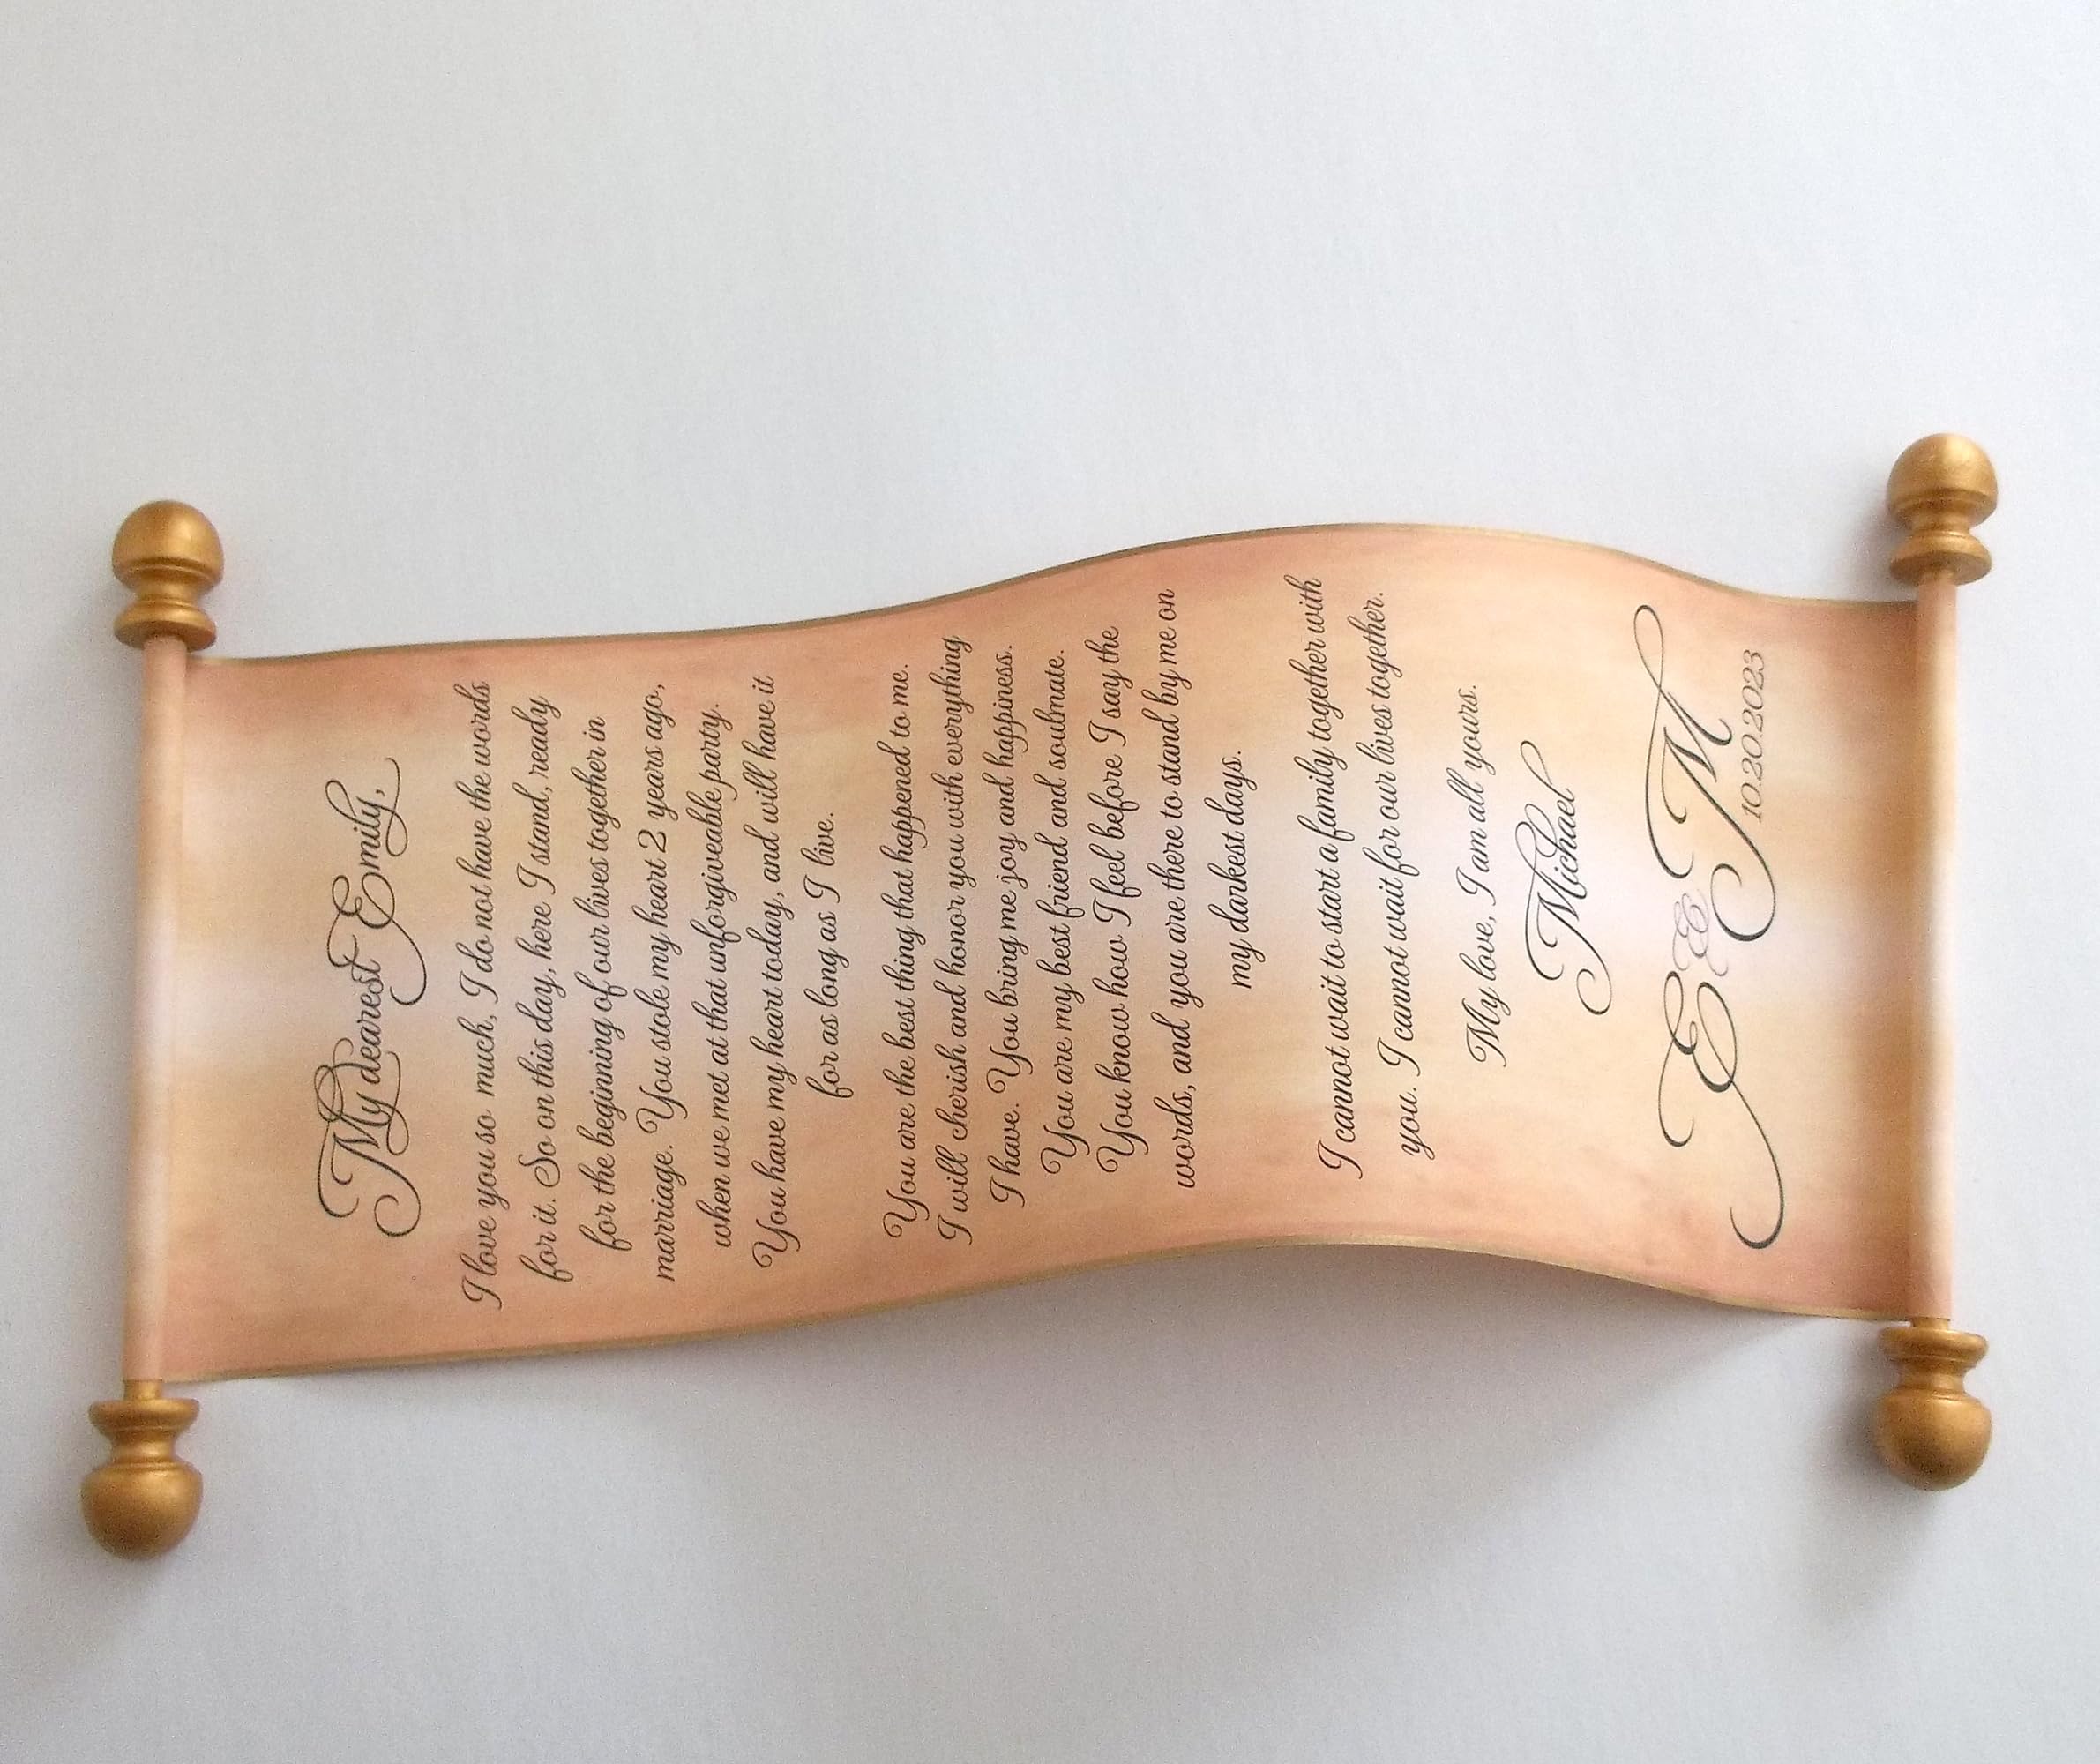 My dearest Emily,
I love you so much, I do not have the words
for it. So on this day, here I stand, ready
for the beginning of our lives together in
marriage. You stole my heart 2 years ago,
when we met at that unforgiveable party.
You have my heart today, and will have it
for as long as I live.
You are the best thing that happened to me.
I will cherish and honor you with everything
I have. You bring me joy and happiness.
You are my best friend and soulmate.
You know how I feel before I say the
words, and you are there to stand by me on
my darkest days.
I cannot wait to start a family together with
you. I cannot wait for our lives together.
My love, I am all yours.
Michael
E & M
10.20.2023